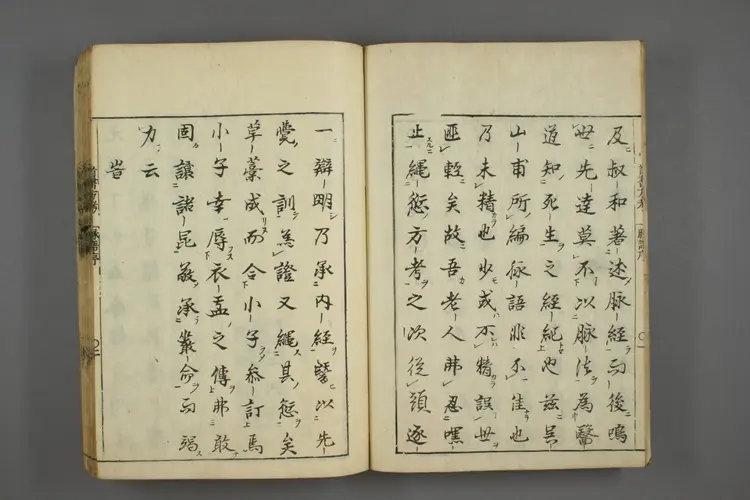 及叔和著述脈經而後鳴
世先達莫不以脈法為醫
道知死生之經紀也茲吳
山甫所編脈語非不佳也
乃未精也少或不精誤世
匪輕矣故吾老人弗忍嘿
止繩愆方考之次從頭逐
一辯明乃承內經鑒以先
覺之訓為證又繩其愆矣
草藁成而令小子參訂焉
小子幸辱衣盂之傳弗敢
固讓諸昆敬承嚴命而竭
力云
旹